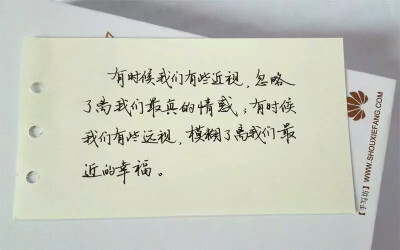 有时候我们有些近视，忽略
了离我们最真的情感；有时候
我们有些远视，模糊了离我们最
近的幸福。
WWW.SHOUXIEFANG.COM
【手写坊】